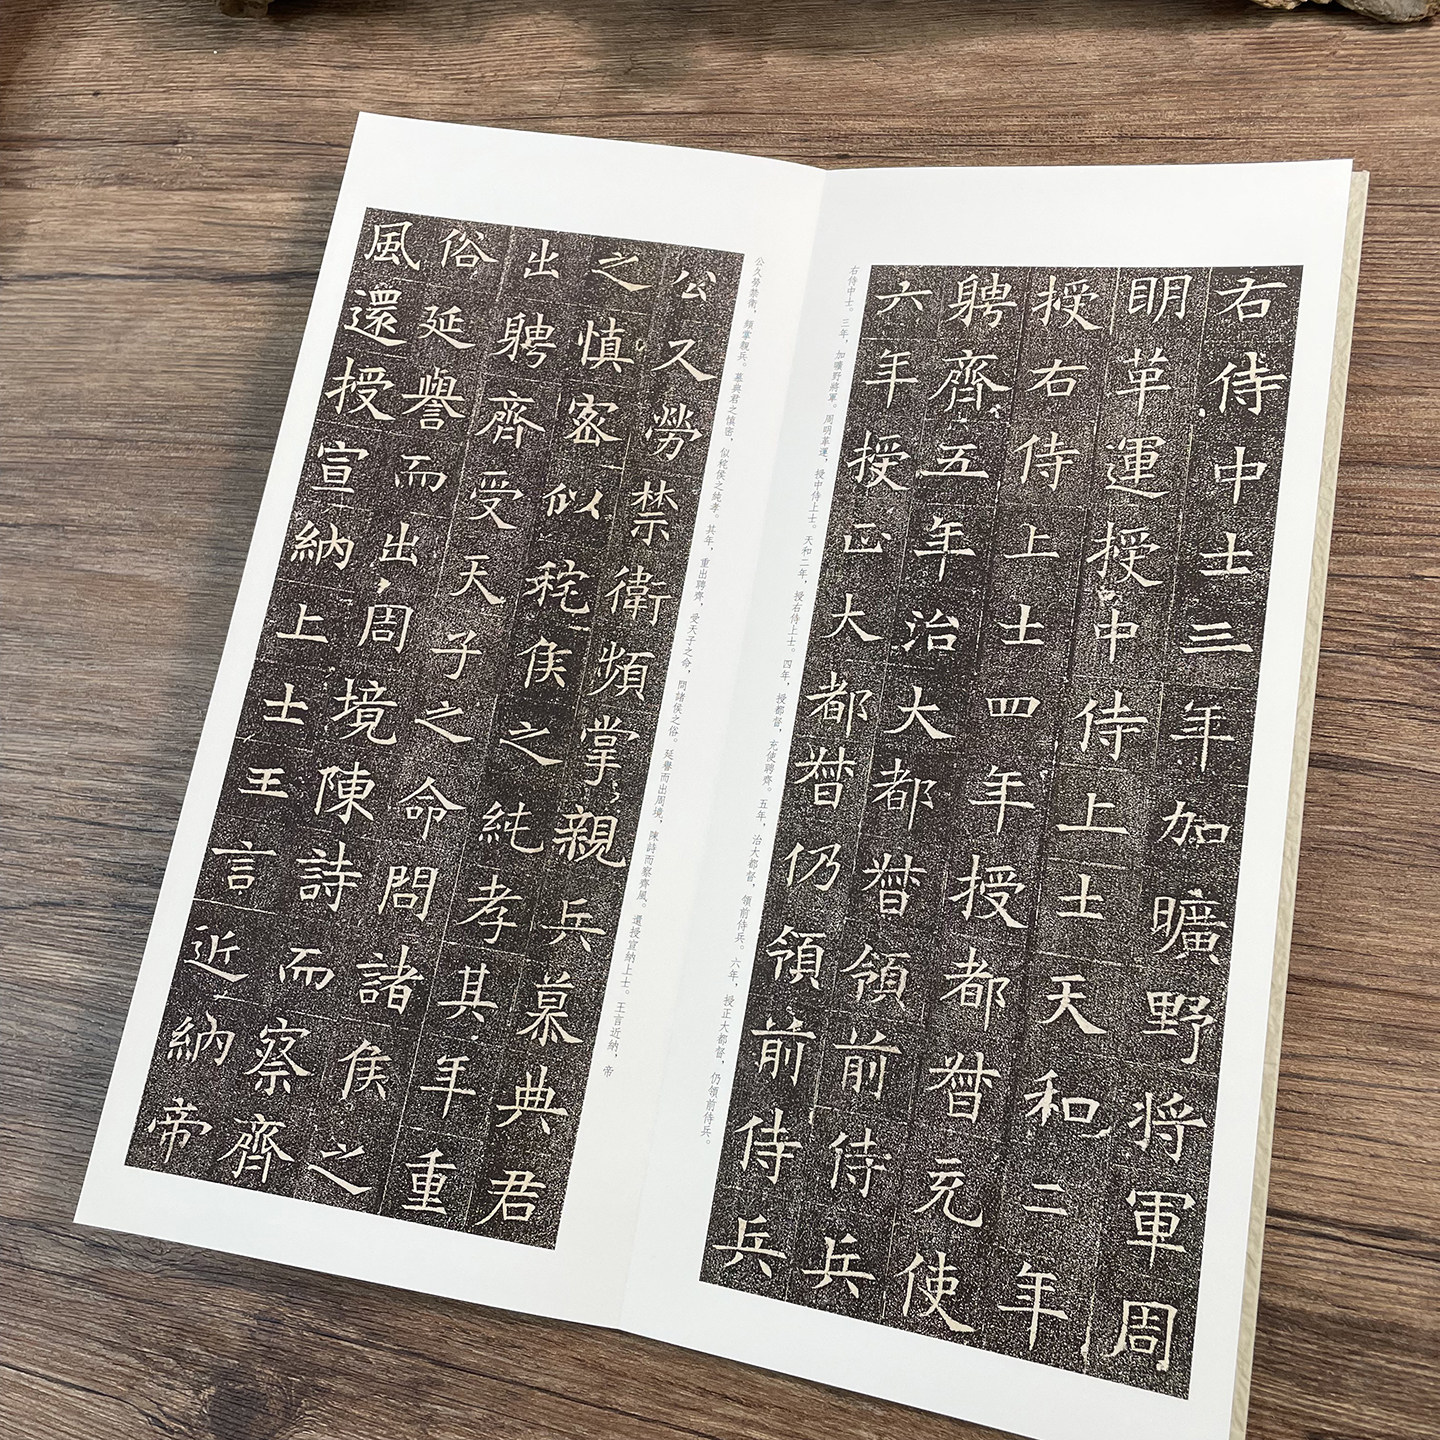 右侍中士三年加曠野將軍周
明革運授中侍上士天和二年
授右侍上士四年授都督充使
聘齊五年治大都督領前侍兵
六年授正大都督仍領前侍兵
右侍中士。三年，加曠野將軍。周明革運，授中侍上士。天和二年，授右侍上士。四年，授都督，充使聘齊。五年，治大都督，領前侍兵。六年，授正大都督，仍領前侍兵。
公久勞禁衛頻掌親兵慕典君
之慎密似秺侯之純孝其年重
出聘齊受天子之命問諸侯之
俗延譽而出周境陳詩而察齊
風還授宣納上士王言近納帝
公久勞禁衛，頻掌親兵。慕典君之慎密，似秺侯之純孝。其年，重出聘齊，受天子之命，問諸侯之俗。延譽而出周境，陳詩而察齊風。還授宣納上士。王言近納，帝